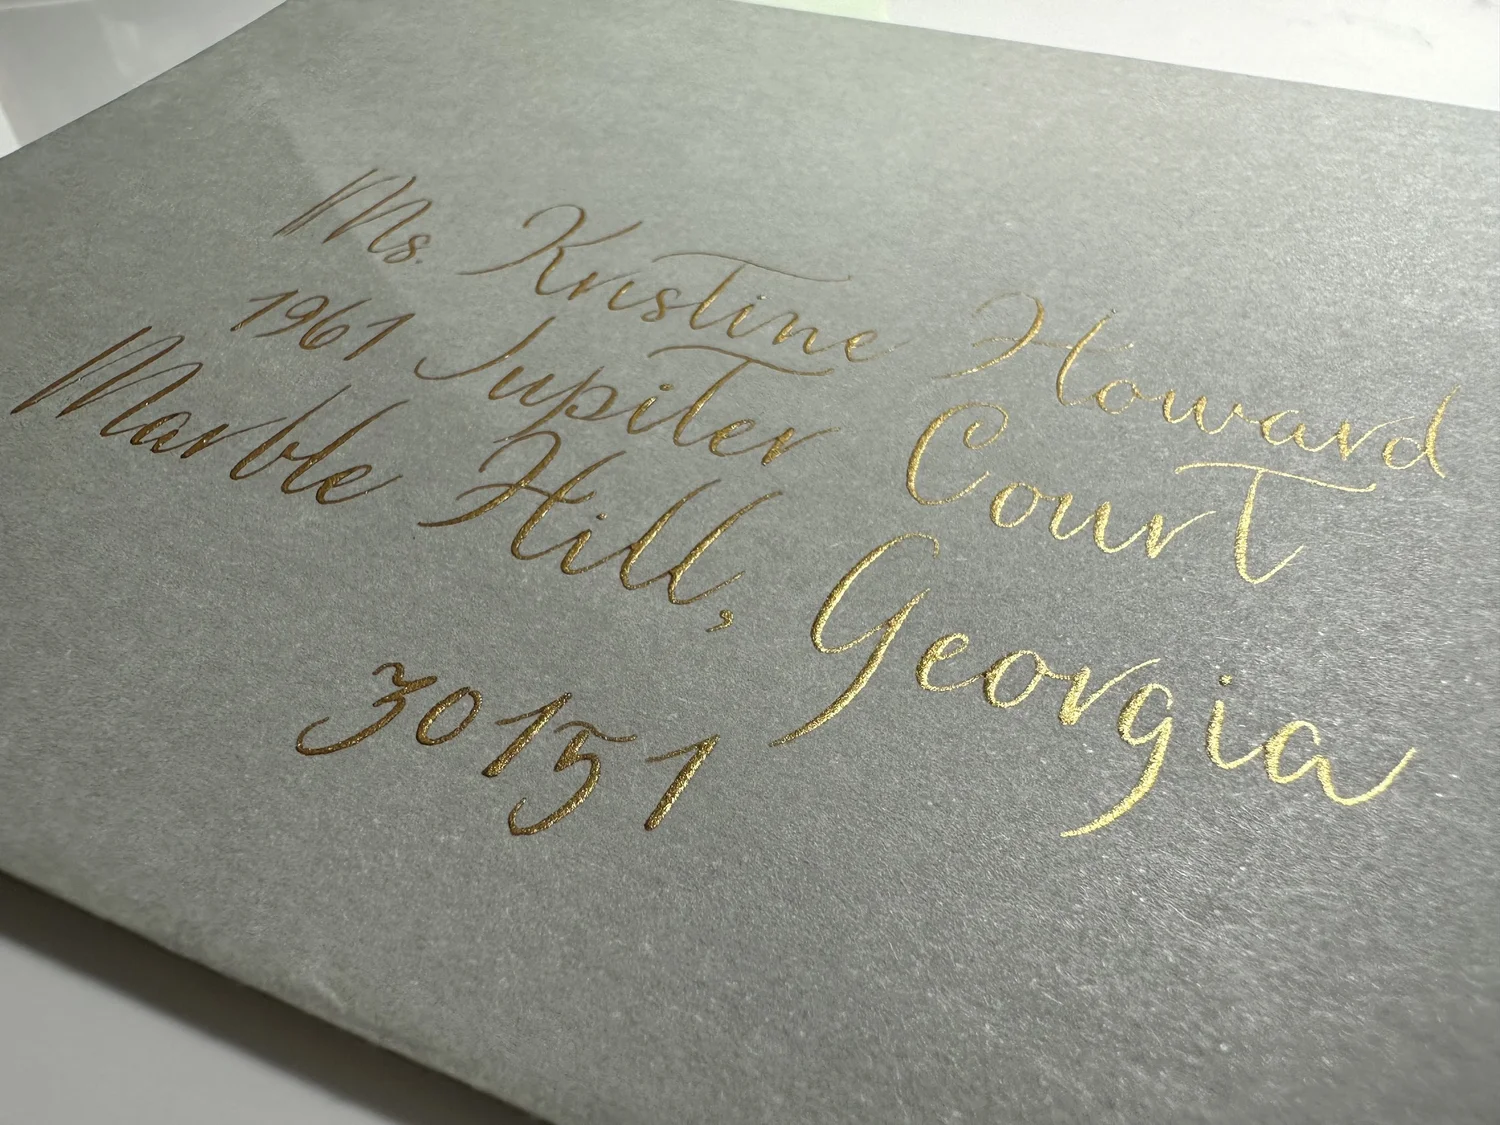 Ms. Kristine Howard
1961 Jupiter Court
Marble Hill, Georgia
30151